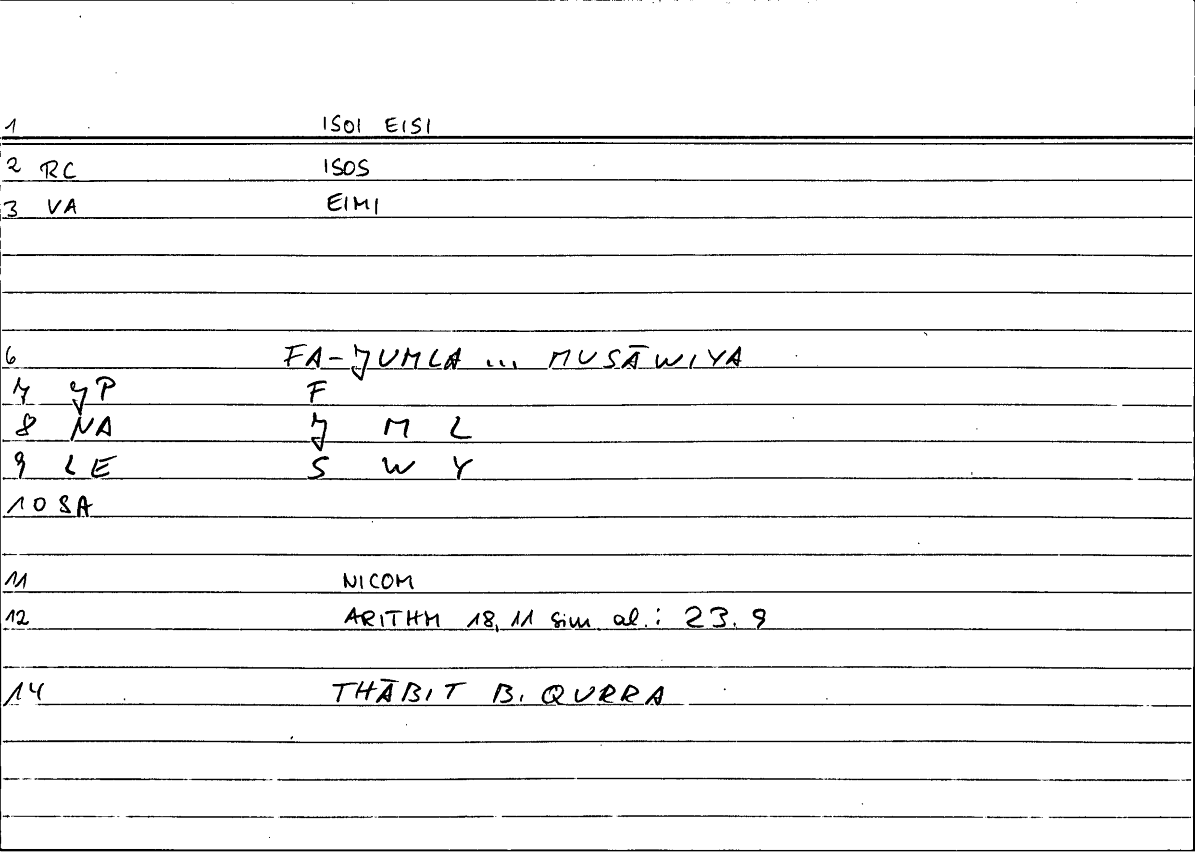 1 ISOI EISI
2 RC ISOS
3 VA EIMI
6 FA-JUMLA ... MUSĀWIYA
7 JP F
8 NA J M L
9 LE S W Y
10 SA
11 NICOM
12 ARITHM 18, 11 sim. al.: 23. 9
14 THĀBIT B. QURRA